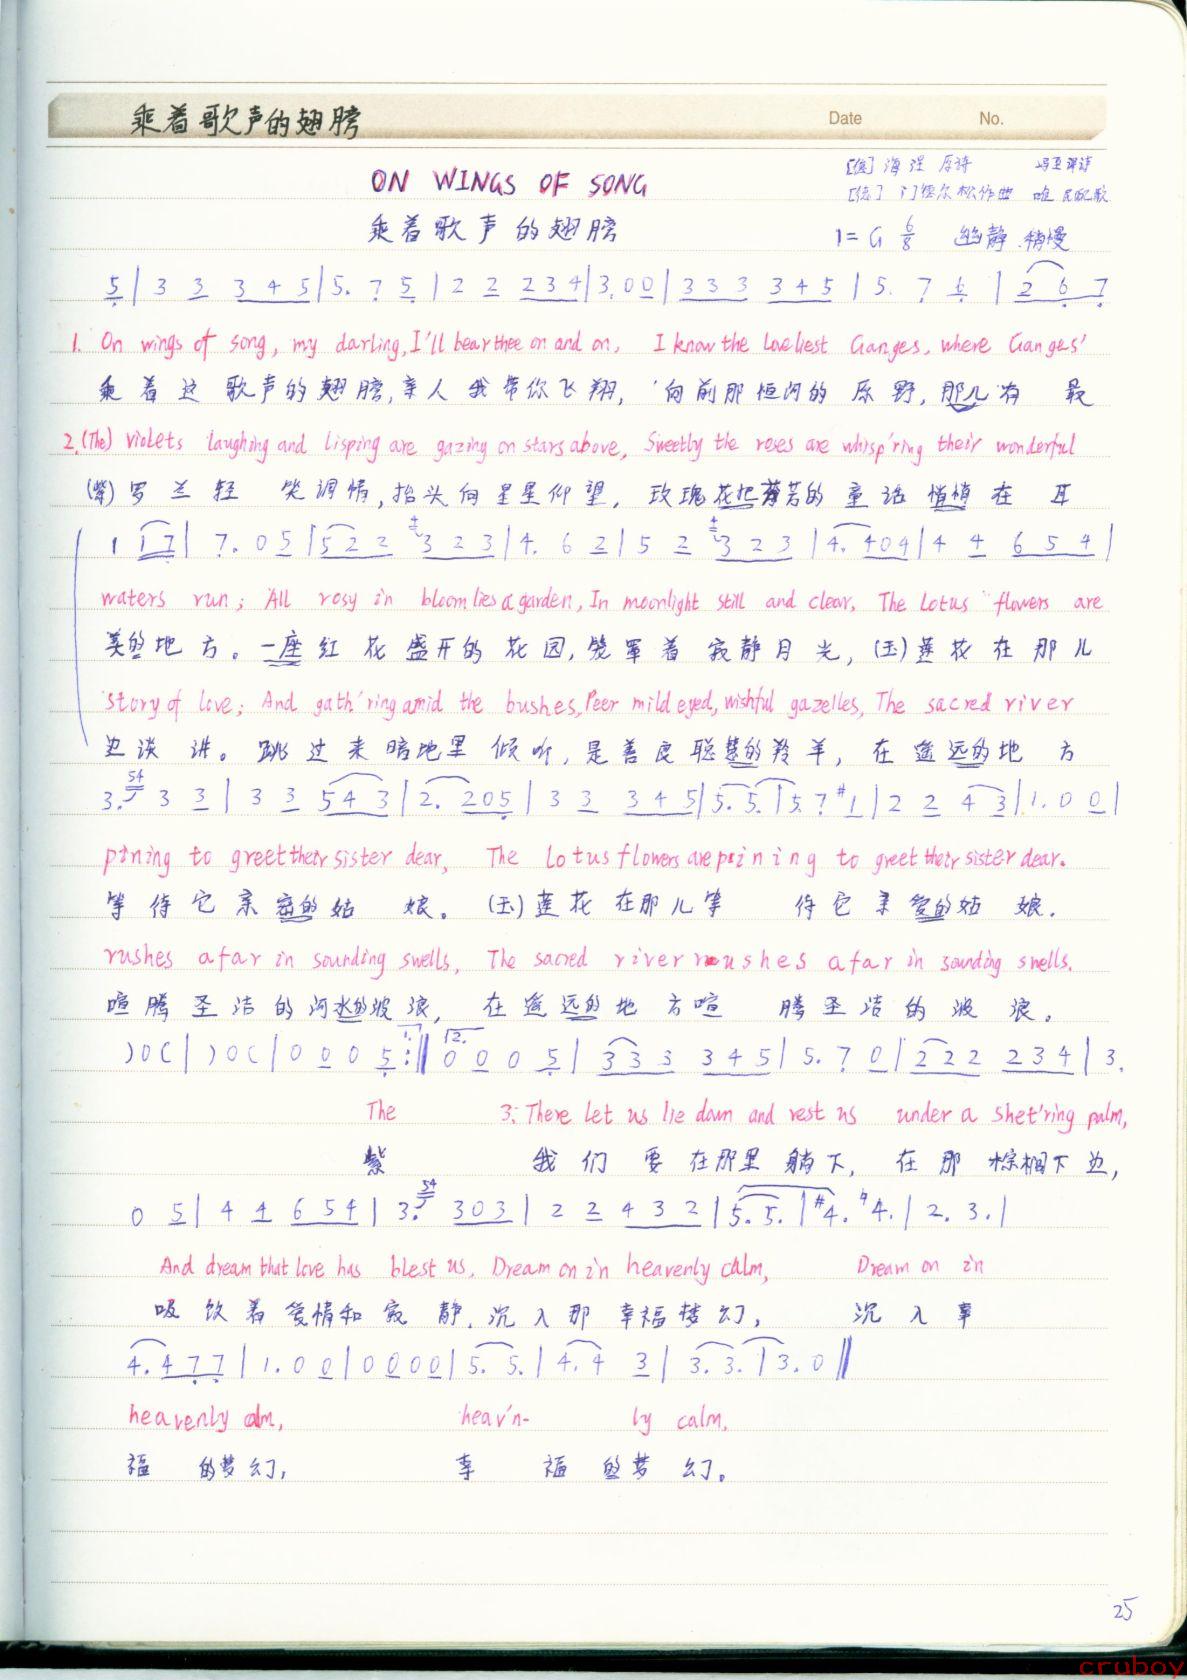 乘着歌声的翅膀
Date No.
[德] 海涅 原诗
ON WINGS OF SONG
[德] 门德尔松作曲
乘着歌声的翅膀
1=G 6/8 幽静.稍慢
5 | 3 3 3 4 5 | 5. 7 5 | 2 2 2 3 4 | 3. 0 0 | 3 3 3 3 4 5 | 5. 7 6 | 2 6 7
1. On wings of song, my darling, I'll bear thee on and on, I know the loveliest Ganges, where Ganges'
乘着这歌声的翅膀,亲人我带你飞翔, 向前那恒河的原野,那儿有最
2. (The) violets laughing and lisping are gazing on stars above, Sweetly the roses are whisp'ring their wonderful
(紫)罗兰轻笑调情,抬头向星星仰望, 玫瑰花把芬芳的童话悄悄在耳
1 1 7 | 7. 0 5 | 5 2 2 3 2 3 | 4. 6 2 | 5 2 3 2 3 | 4. 4 0 4 | 4 4 6 5 4 |
waters run; All rosy in bloom lies a garden, In moonlight still and clear, The Lotus flowers are
美的地方。一座红花盛开的花园,笼罩着寂静月光,(玉)莲花在那儿
story of love; And gath'ring amid the bushes, Peer mild eyed, wishful gazelles, The sacred river
边谈讲。跳过来暗地里倾听,是善良聪慧的羚羊,在遥远的地方
3. 54 3 3 | 3 3 5 4 3 | 2. 2 0 5 | 3 3 3 4 5 | 5. 5. | 5. 7 #1 | 2 2 4 3 | 1. 0 0 |
pining to greet their sister dear, The lotus flowers are pining to greet their sister dear.
等待它亲密的姑娘。(玉)莲花在那儿等待它亲爱的姑娘.
rushes afar in sounding swells, The sacred river rushes afar in sounding swells.
喧腾圣洁的河水的波浪, 在遥远的地方喧腾圣洁的波浪。
)0( | )0( | 0 0 0 5 :‖ 1. 2. 0 0 0 5 | 3 3 3 3 4 5 | 5. 7 0 | 2 2 2 2 3 4 | 3.
The 3. There let us lie down and rest us under a shet'ring palm,
紫 我们要在那里躺下, 在那棕榈下边,
0 5 | 4 4 6 5 4 | 3. 54 3 0 3 | 2 2 4 3 2 | 5. 5. | #4. ♮4. | 2. 3. |
And dream that love has blest us, Dream on in heavenly calm, Dream on in
吸饮着爱情和寂静,沉入那幸福梦幻, 沉入幸
4. 4 7 7 | 1. 0 0 | 0 0 0 0 | 5. 5. | 4. 4 3 | 3. 3. | 3. 0 ‖
heavenly calm, heav'n- ly calm.
福的梦幻, 幸福的梦幻。
25
cruboy